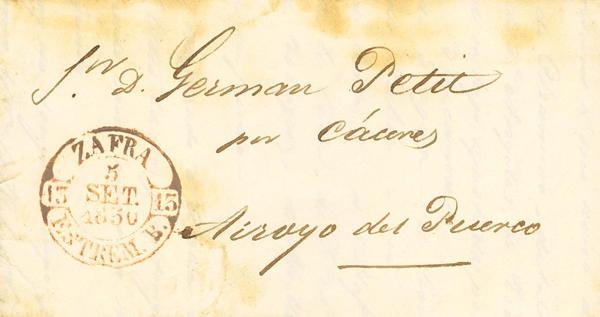 Sr. D. German Petit
por Cáceres
Arroyo del Puerco
ZAFRA
5
SET.
1850
15 15
ESTREM. B.